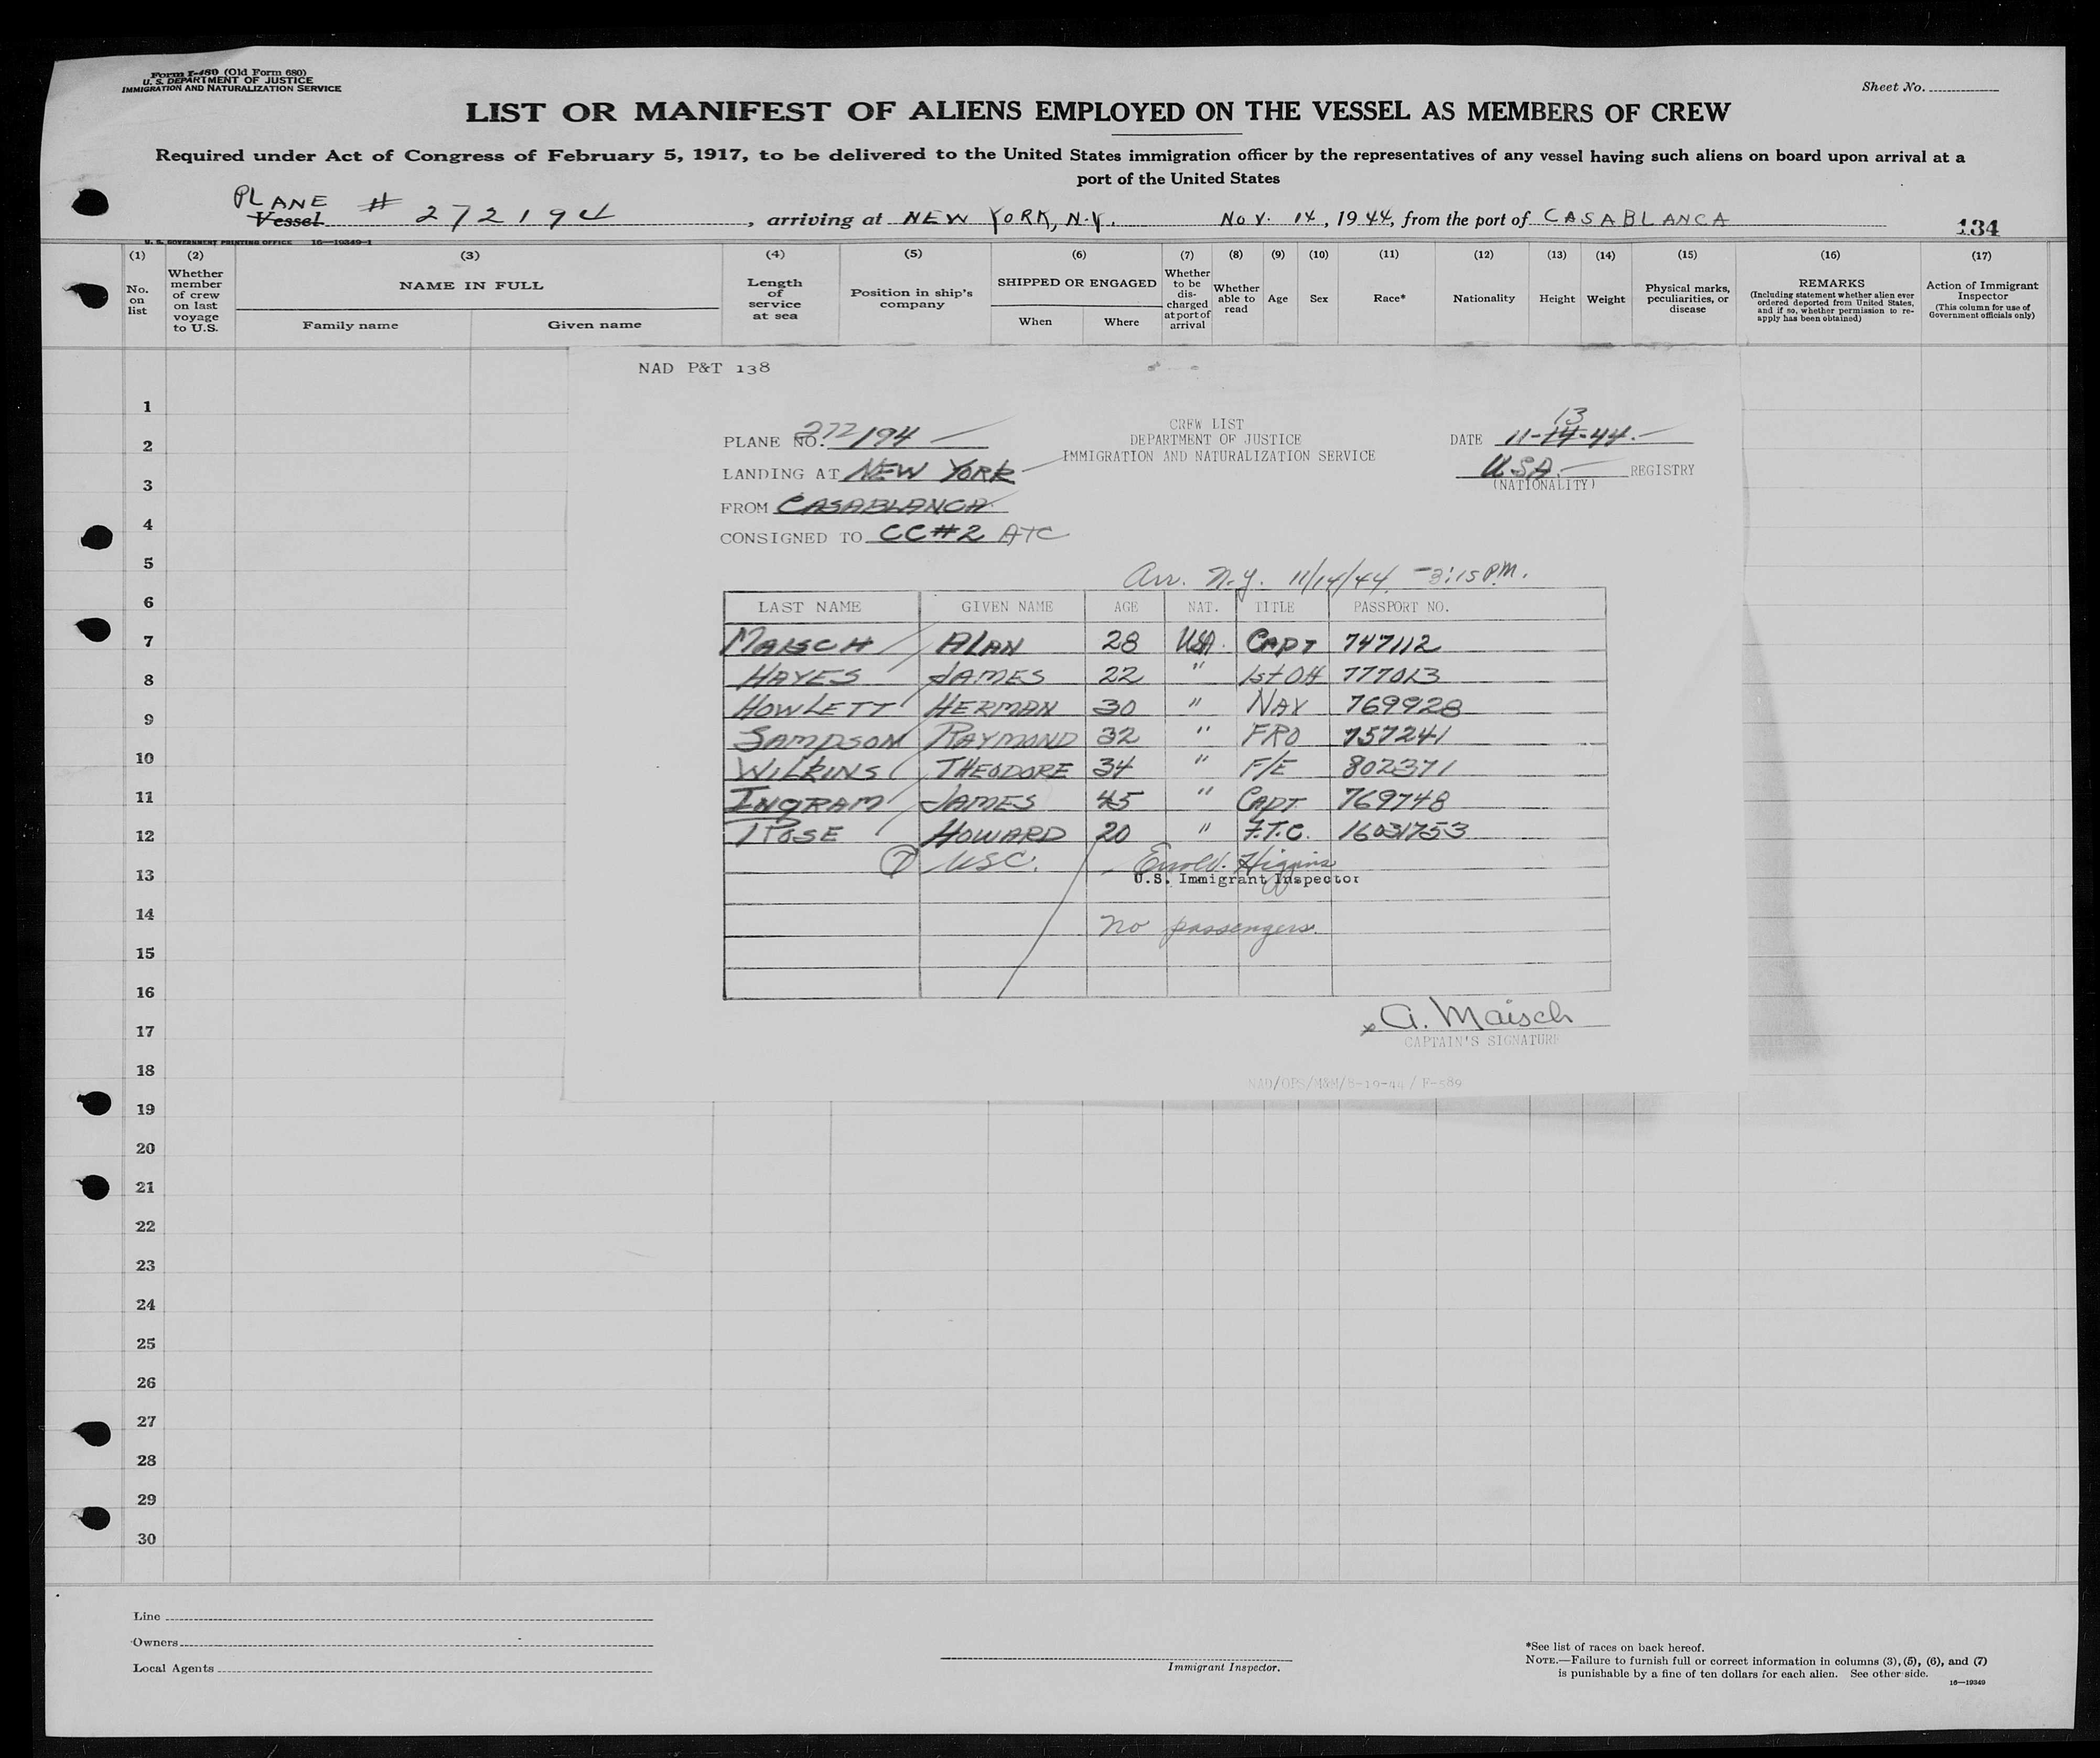 Form I-480 (Old Form 680)
U. S. DEPARTMENT OF JUSTICE
IMMIGRATION AND NATURALIZATION SERVICE
Sheet No.
LIST OR MANIFEST OF ALIENS EMPLOYED ON THE VESSEL AS MEMBERS OF CREW
Required under Act of Congress of February 5, 1917, to be delivered to the United States immigration officer by the representatives of any vessel having such aliens on board upon arrival at a
port of the United States
PLANE
Vessel # 272194, arriving at NEW YORK, N.Y. NOV. 14, 1944, from the port of CASABLANCA
134
U. S. GOVERNMENT PRINTING OFFICE 16—19349-1
(1) No. on list
(2) Whether member of crew on last voyage to U.S.
(3) NAME IN FULL
Family name Given name
(4) Length of service at sea
(5) Position in ship's company
(6) SHIPPED OR ENGAGED
When Where
(7) Whether to be discharged at port of arrival
(8) Whether able to read
(9) Age
(10) Sex
(11) Race*
(12) Nationality
(13) Height
(14) Weight
(15) Physical marks, peculiarities, or disease
(16) REMARKS
(Including statement whether alien ever ordered deported from United States, and if so, whether permission to re-apply has been obtained)
(17) Action of Immigrant Inspector
(This column for use of Government officials only)
NAD P&T 138
CREW LIST
DEPARTMENT OF JUSTICE
IMMIGRATION AND NATURALIZATION SERVICE
PLANE NO. 272194
LANDING AT NEW YORK
FROM CASABLANCA
CONSIGNED TO CC#2 ATC
13
DATE 11-14-44.
USA. REGISTRY
(NATIONALITY)
Arr. N.Y. 11/14/44 - 3:15 P.M.
LAST NAME GIVEN NAME AGE NAT. TITLE PASSPORT NO.
MAISCH ALAN 28 USA. CAPT 747112
HAYES JAMES 22 " 1st Off 777013
HOWLETT HERMAN 30 " NAV 769928
SAMPSON RAYMOND 32 " FRO 757241
WILKINS THEODORE 34 " F/E 802371
INGRAM JAMES 45 " CAPT 769748
ROSE HOWARD 20 " F.T.C. 16031753
7 USC. Higgins
U.S. Immigrant Inspector
No passengers.
x A. Maisch
CAPTAIN'S SIGNATURE
NAD/OPS/M&M/8-19-44/ F-589
1
2
3
4
5
6
7
8
9
10
11
12
13
14
15
16
17
18
19
20
21
22
23
24
25
26
27
28
29
30
Line
Owners
Local Agents
Immigrant Inspector.
*See list of races on back hereof.
NOTE.—Failure to furnish full or correct information in columns (3), (5), (6), and (7)
is punishable by a fine of ten dollars for each alien. See other side.
16—19349